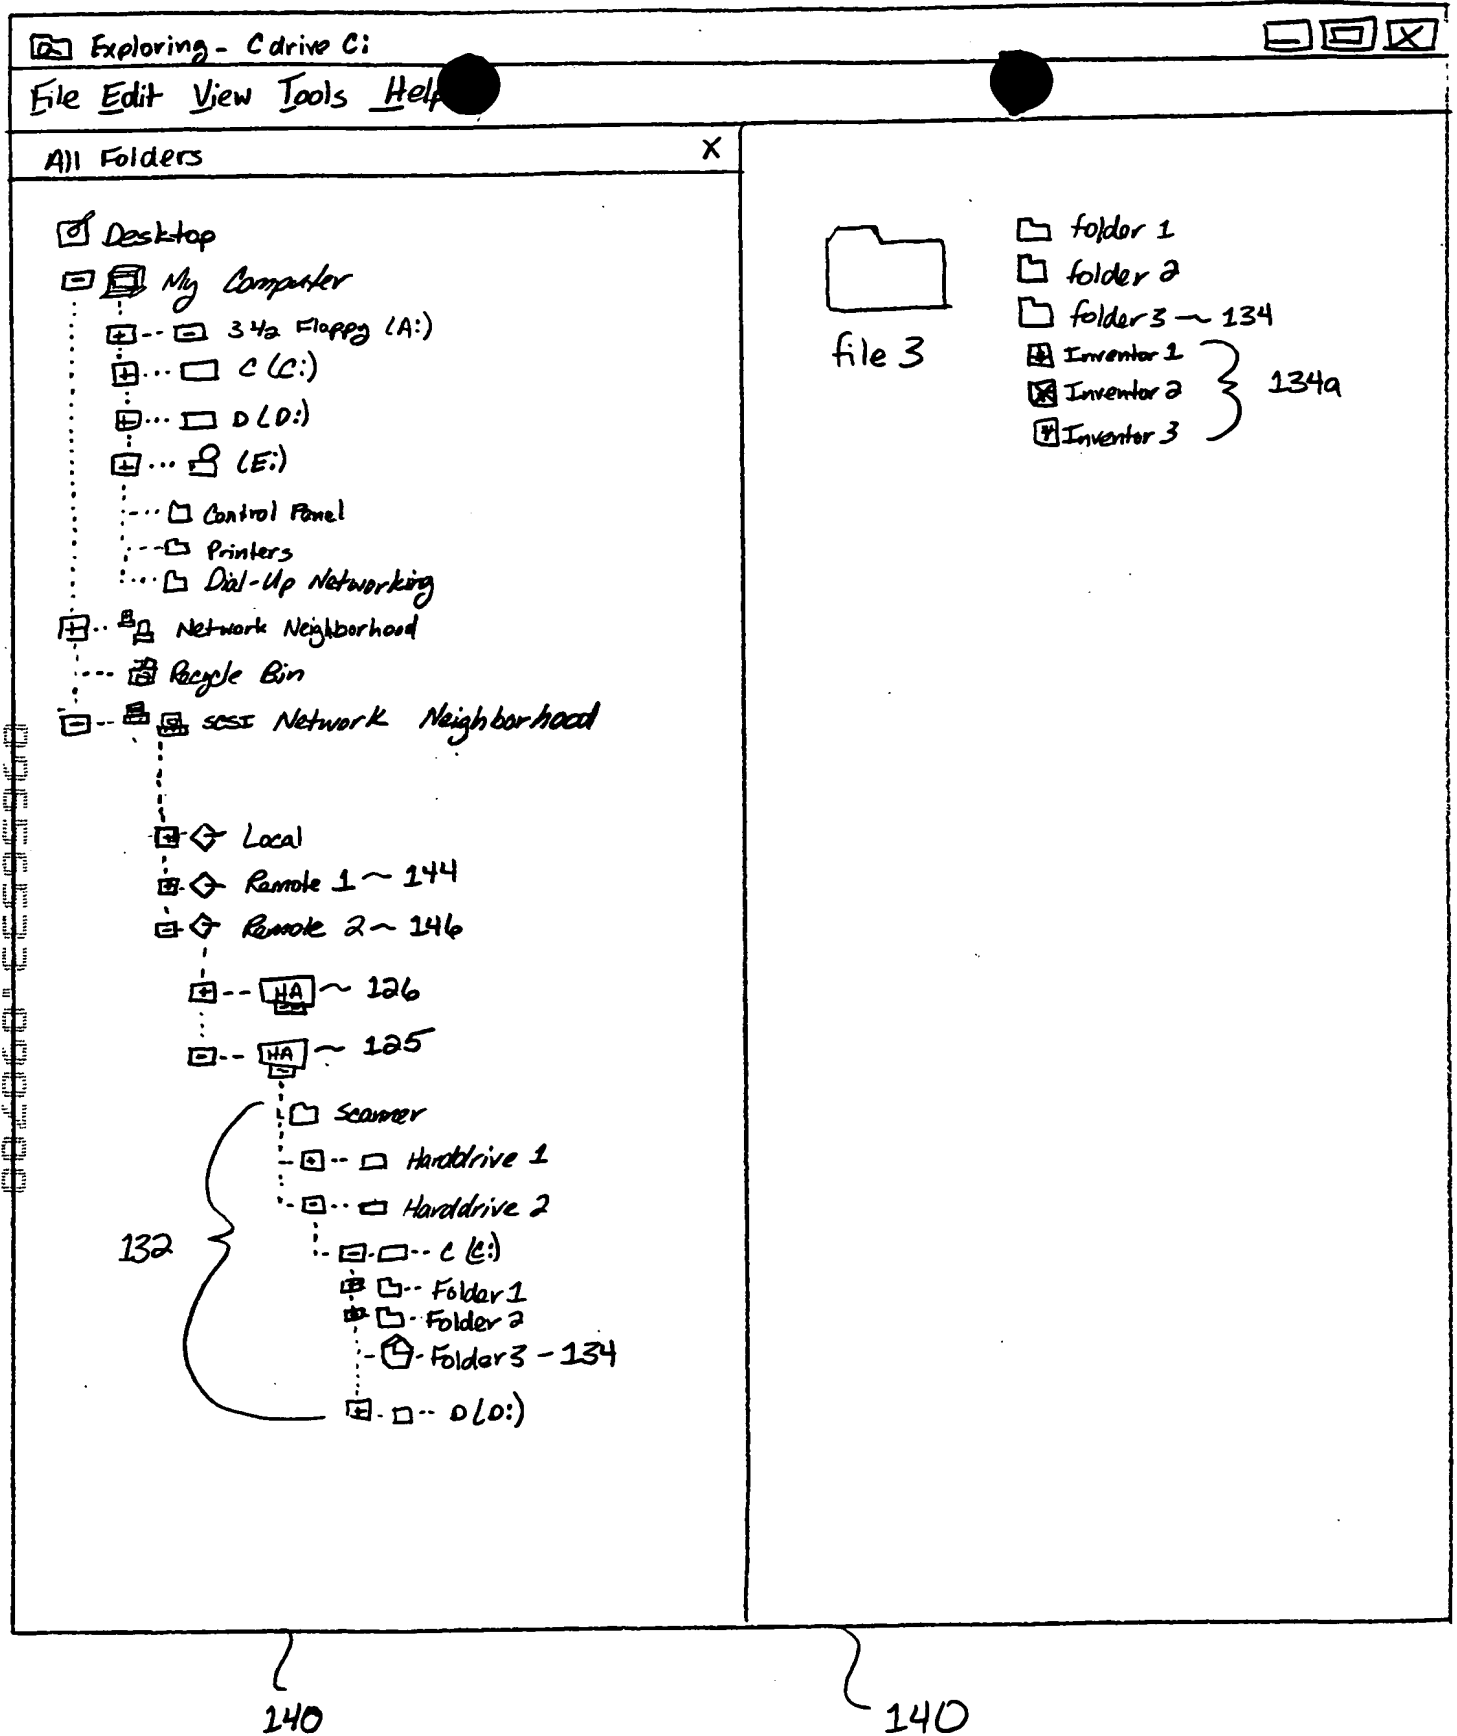 Exploring - C drive C:
File Edit View Tools Help
All Folders X
Desktop
My Computer
3 1/2 Floppy (A:)
C (C:)
D (D:)
(E:)
Control Panel
Printers
Dial-Up Networking
Network Neighborhood
Recycle Bin
SCSI Network Neighborhood
Local
Remote 1 ~ 144
Remote 2 ~ 146
HA ~ 126
HA ~ 125
Scanner
Harddrive 1
Harddrive 2
132
C (C:)
Folder 1
Folder 2
Folder 3 - 134
D (D:)
file 3
folder 1
folder 2
folder 3 ~ 134
Inventor 1
Inventor 2
Inventor 3
134a
140
140